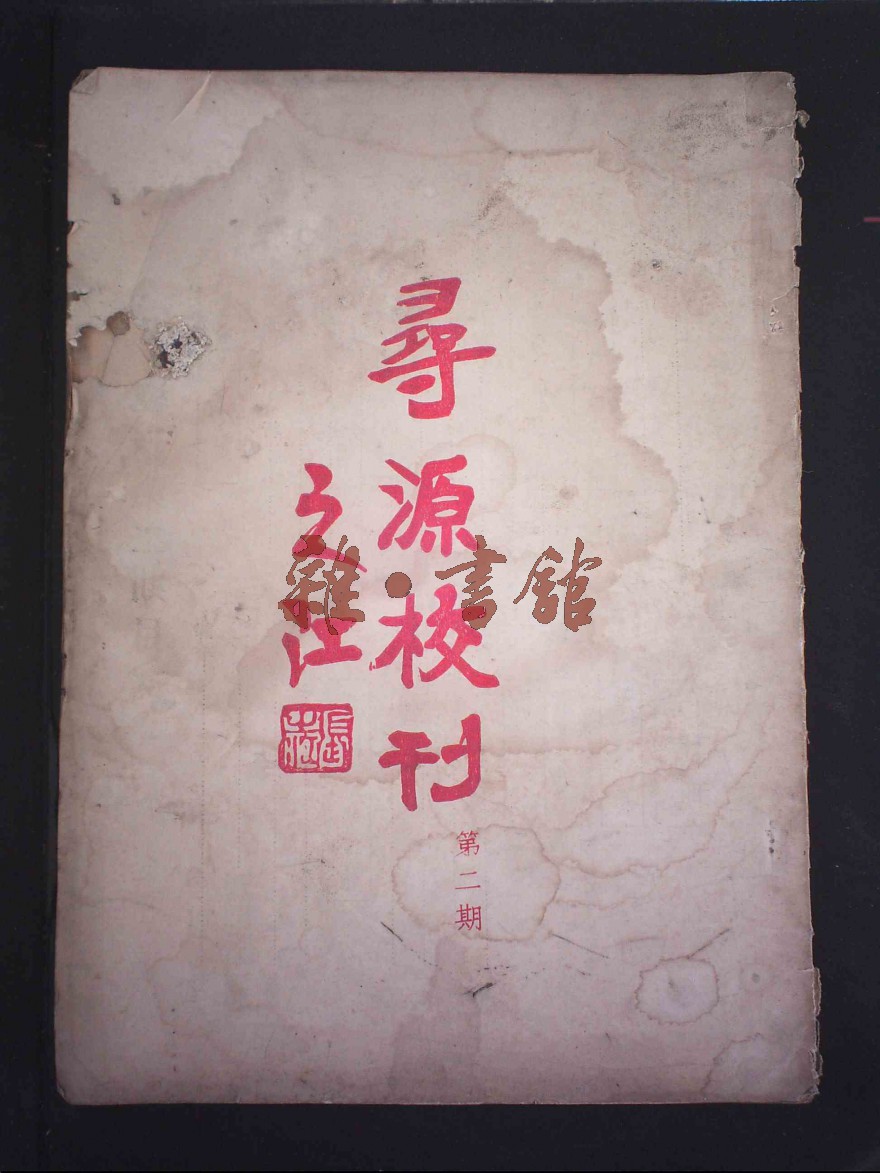 尋源校刊
第二期
之江
雜·書館